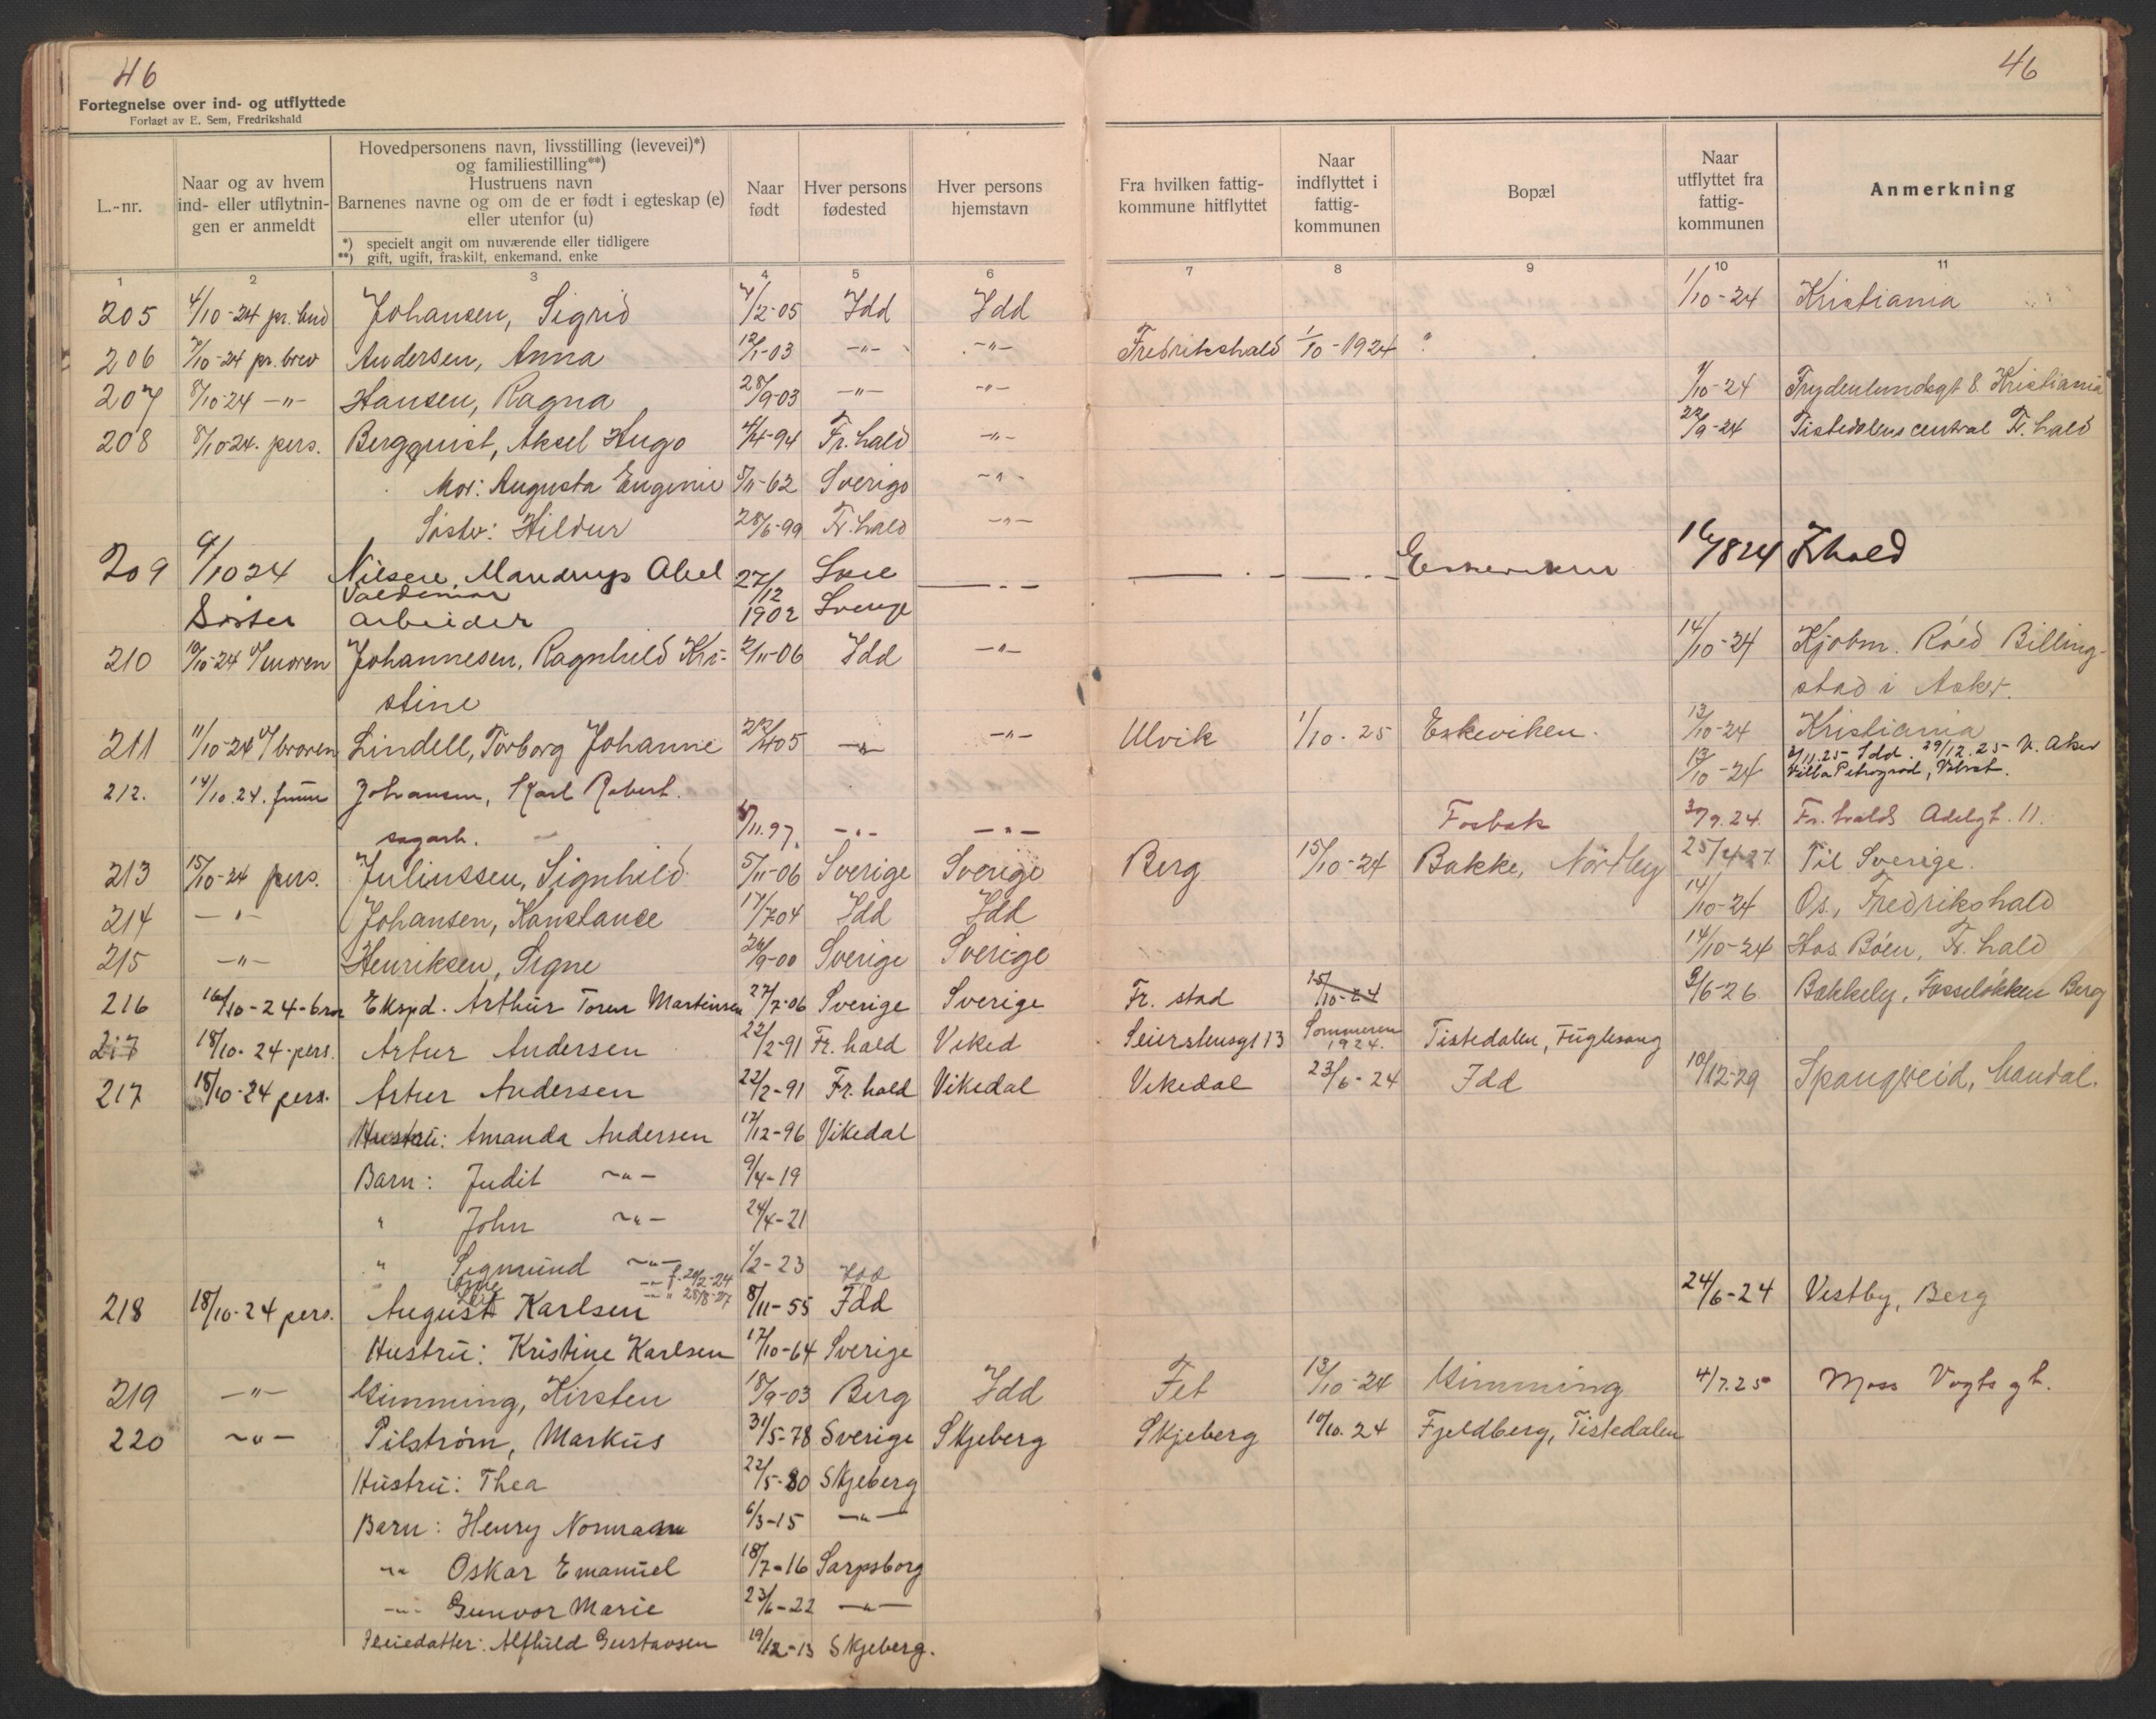 46
46
Fortegnelse over ind- og utflyttede
Forlagt av E. Sem, Fredrikshald
L.-nr.
Naar og av hvem ind- eller utflytnin-gen er anmeldt
Hovedpersonens navn, livsstilling (levevei)*)
og familiestilling**)
Hustruens navn
Barnenes navne og om de er født i egteskap (e)
eller utenfor (u)
*) specielt angit om nuværende eller tidligere
**) gift, ugift, fraskilt, enkemand, enke
Naar født
Hver persons fødested
Hver persons hjemstavn
Fra hvilken fattig-kommune hitflyttet
Naar indflyttet i fattig-kommunen
Bopæl
Naar utflyttet fra fattig-kommunen
Anmerkning
1 2 3 4 5 6 7 8 9 10 11
205 4/10-24 pr. bud Johansen, Sigrid 4/12-05 Idd Idd 1/10-24 Kristiania
206 7/10-24 pr. brev Andersen, Anna 12/1-03 -"- -"- Fredrikshald 1/10-1924 ?
207 8/10-24 -"- Hansen, Ragna 28/9-03 -"- -"- 1/10-24 Frydenlundsgt 8. Kristiania
208 8/10-24. pers. Bergquist, Aksel Hugo 4/4-94 Fr.hald -"- 22/9-24 Tistedalens central Fr.hald
Mor: Augusta Eugenie 5/11-62 Sverige -"-
Søster: Hildur 28/6-99 Fr.hald -"-
209 9/10 24 Nilsen, Mandrup Abel 27/12 16/8 24 Fhald
Valdemar
Søster arbeider 1902 Sverige
210 10/10-24 v/moren Johannesen, Ragnhild Kri- 2/11-06 Idd -"- 14/10-24 Kjøbm. Röed Billing-
stine stad i Asker.
211 11/10-24 v/broren Lindell, Torborg Johanne 22/4 05 -"- -"- Ulvik 1/10. 25 Eskeviken. 13/10-24 Kristiania
2/11.25 Idd. 29/12.25 V. Aker
212. 14/10.24. Johansen, Karl Robert. 13/10-24 Villa Petrograd,
sagarb. 5/11.97. -"- -"- Fosbek 30/9.24. Fr.halds Adelgt. 11.
213 15/10-24 pers. Juliussen, Signhild 5/11-06 Sverige Sverige Berg 15/10-24 Bakke, Nordby 25/4-27. Til Sverige.
214 -"- Johansen, Konstance 17/7 04 Idd Idd 14/10-24 Os, Fredrikshald
215 -"- Henriksen, Signe 26/9-00 Sverige Sverige 14/10-24 Hos Böen, Fr.hald
216 16/10-24-bror Eksped. Arthur Toren Martinsen 27/7-06 Sverige Sverige Fr. stad 15/10-24 9/6-26 Bakkely, Fosseløkken Berg
217 18/10-24-pers. Artur Andersen 22/2-91 Fr.hald Viked Seierstensgt 13 Sommeren 1924. Tistedalen, Fuglesang
217 18/10-24 pers. Artur Andersen 22/2-91 Fr.hald Vikedal Vikedal 23/6-24 Idd 10/12-29 Spangreid, Mandal.
Hustru: Amanda Andersen 17/12-96 Vikedal
Barn: Judit -"- 9/4-19
" John -"- 24/4-21
" Sigmund -"- 1/2-23
-"- f. 20/2-24 Idd
-"- " 28/8-27
218 18/10-24 pers. August Karlsen 8/11-55 Idd 24/6-24 Vestby, Berg
Hustru: Kristine Karlsen 17/10-64 Sverige
219 -"- Gimming, Kirsten 18/9-03 Berg Idd Fet 13/10-24 Gimming 4/7.25 Moss Vogts gt.
220 -"- Pilström, Markus 31/5-78 Sverige Skjeberg Skjeberg 10/10.24 Fjeldberg, Tistedalen
Hustru: Thea 22/5-80 Skjeberg
Barn: Henry Normann 6/3-15 -"-
-"- Oskar Emanuel 18/7-16 Sarpsborg
-"- Gunvor Marie 23/6-22 -"-
Pleiedatter: Alfhild Gustavsen 19/12-13 Skjeberg.